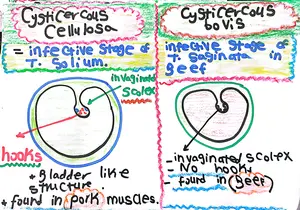 Cysticercous
Cellulosa
= infective Stage of
T. Solium.
invaginated
Scolex
hooks
+ bladder like
structure.
+ found in pork muscles.
Cysticercous
bovis
infective Stage of
T. Saginata in
Beef
- invaginated scolex
- No hooks
- found in Beef